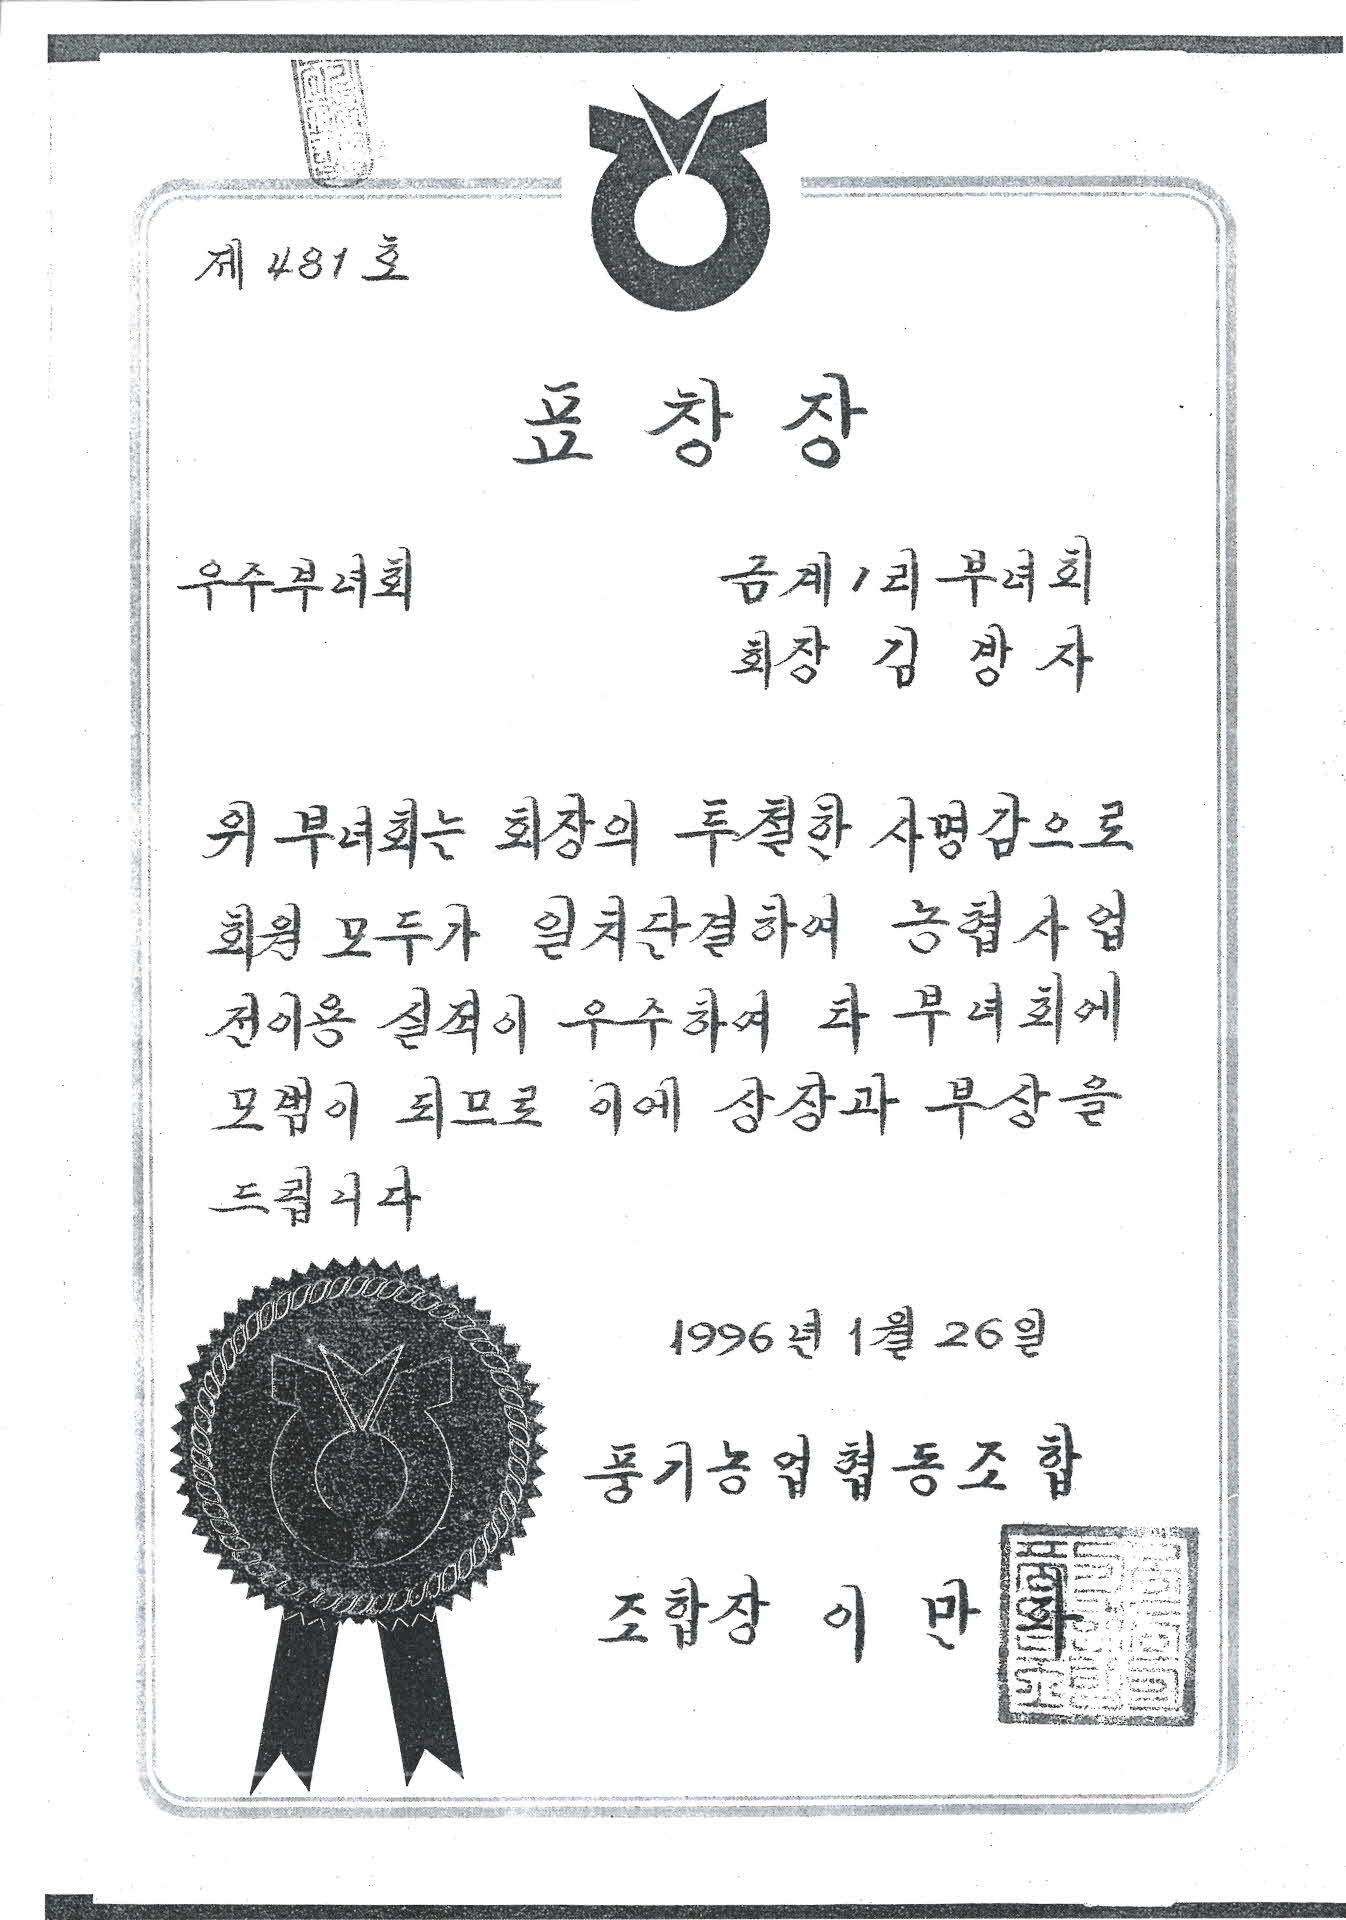 제 481 호
표 창 장
우수부녀회
금계1리 부녀회
회장 김 방 자
위 부녀회는 회장의 투철한 사명감으로
회원 모두가 일치단결하여 농협사업
전이용 실적이 우수하여 타 부녀회에
모범이 되므로 이에 상장과 부상을
드립니다
1996년 1월 26일
풍기농업협동조합
조합장 이 만